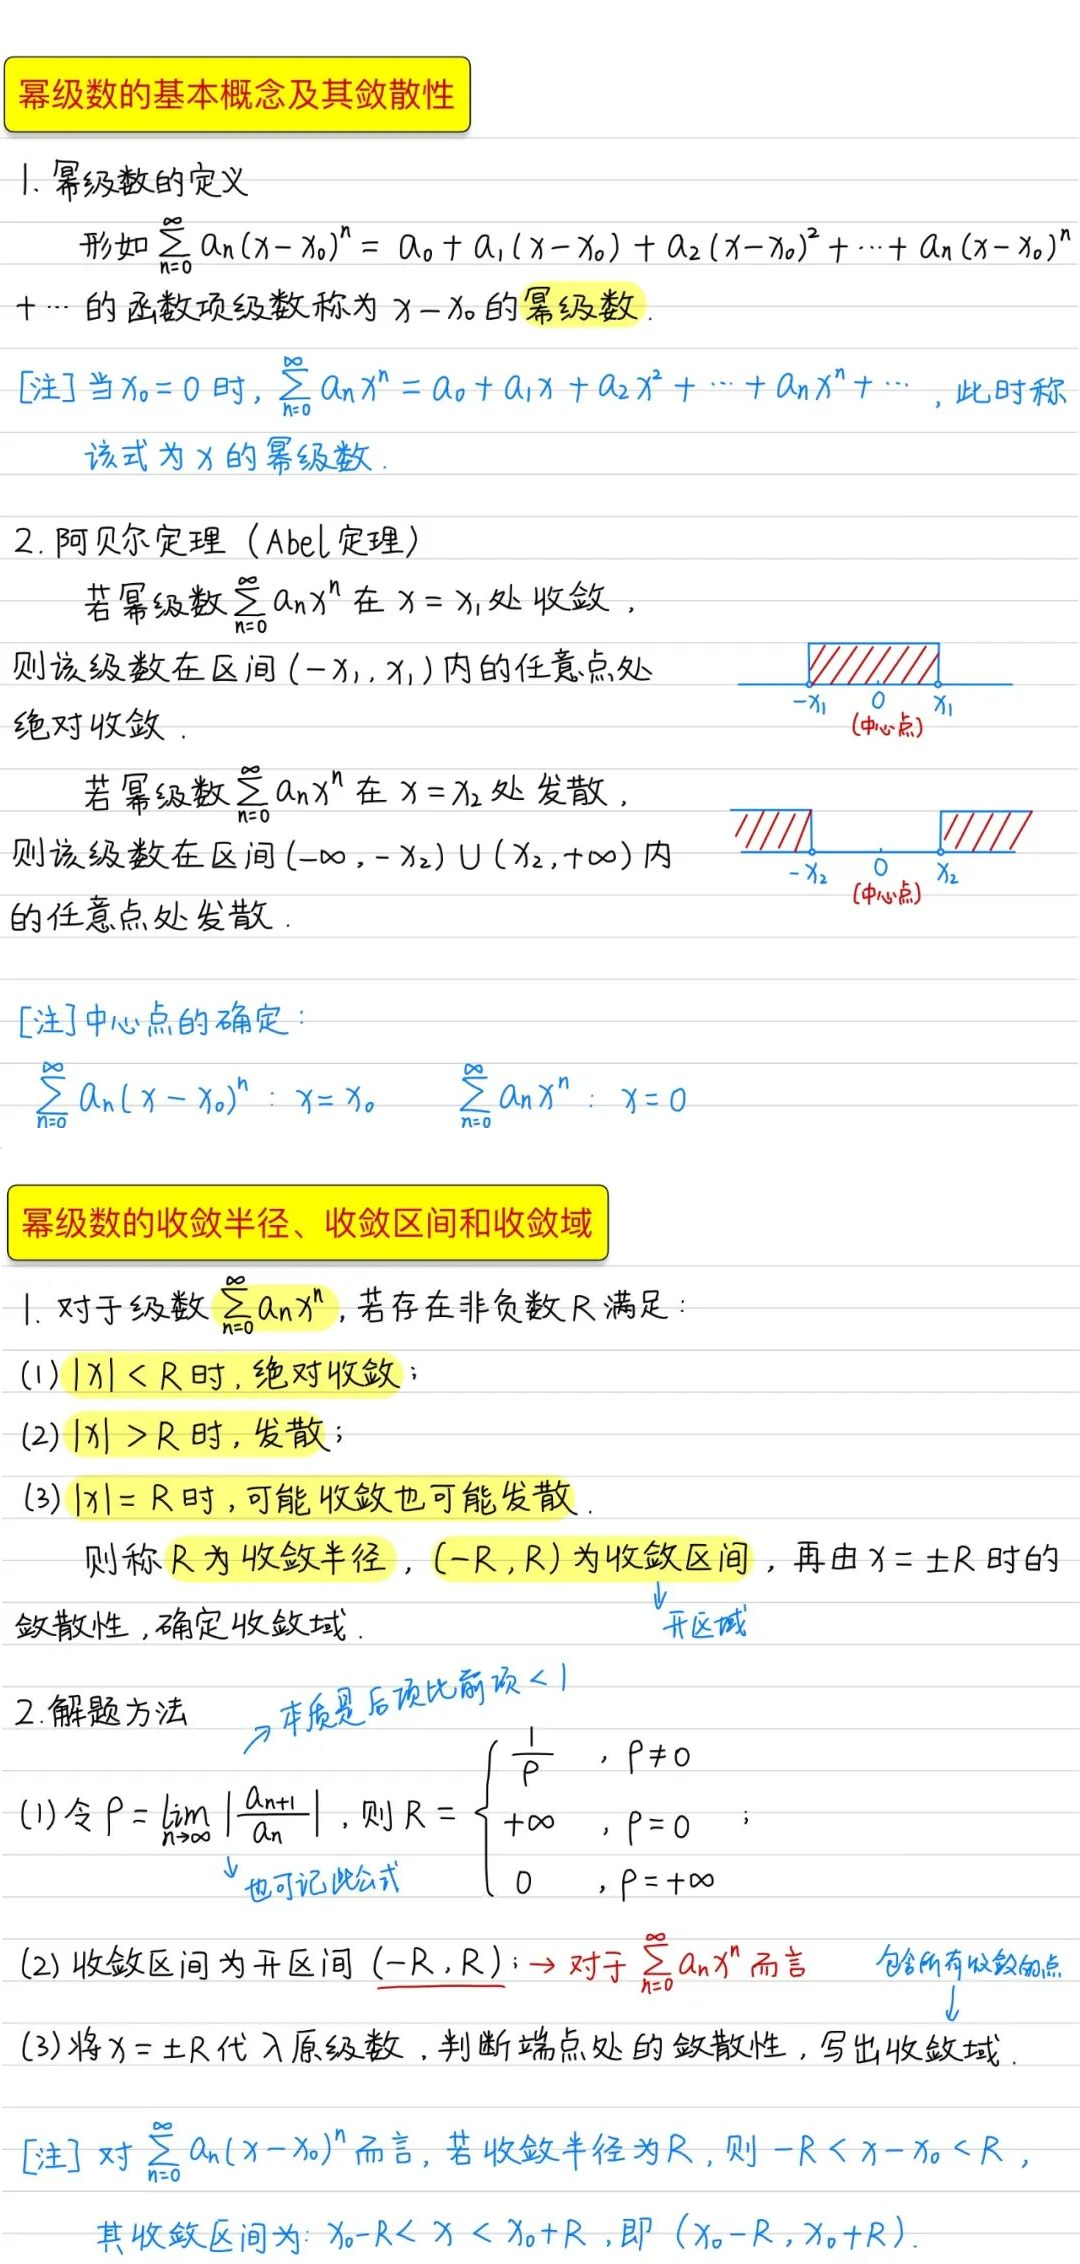 幂级数的基本概念及其敛散性
1. 幂级数的定义
形如 ∑_{n=0}^{∞} aₙ(x-x₀)ⁿ = a₀ + a₁(x-x₀) + a₂(x-x₀)² + … + aₙ(x-x₀)ⁿ
+ … 的函数项级数称为 x-x₀ 的幂级数.
[注] 当 x₀=0 时, ∑_{n=0}^{∞} aₙxⁿ = a₀ + a₁x + a₂x² + … + aₙxⁿ + … , 此时称
该式为 x 的幂级数.
2. 阿贝尔定理 (Abel定理)
若幂级数 ∑_{n=0}^{∞} aₙxⁿ 在 x = x₁ 处收敛,
则该级数在区间 (-x₁, x₁) 内的任意点处
绝对收敛.
-x₁ 0 x₁
(中心点)
若幂级数 ∑_{n=0}^{∞} aₙxⁿ 在 x = x₂ 处发散,
则该级数在区间 (-∞, -x₂) ∪ (x₂, +∞) 内
的任意点处发散.
-x₂ 0 x₂
(中心点)
[注] 中心点的确定:
∑_{n=0}^{∞} aₙ(x-x₀)ⁿ : x = x₀ ∑_{n=0}^{∞} aₙxⁿ : x = 0
幂级数的收敛半径、收敛区间和收敛域
1. 对于级数 ∑_{n=0}^{∞} aₙxⁿ, 若存在非负数 R 满足:
(1) |x| < R 时, 绝对收敛;
(2) |x| > R 时, 发散;
(3) |x| = R 时, 可能收敛也可能发散.
则称 R 为收敛半径, (-R, R) 为收敛区间, 再由 x = ±R 时的
敛散性, 确定收敛域.
↓ 开区域
2. 解题方法
↗ 本质是后项比前项 < 1
(1) 令 ρ = lim_{n→∞} |aₙ₊₁/aₙ|, 则 R = { 1/ρ , ρ≠0
+∞ , ρ=0 ;
0 , ρ=+∞
↓ 也可记此公式
(2) 收敛区间为开区间 (-R, R); → 对于 ∑_{n=0}^{∞} aₙxⁿ 而言
包含所有收敛的点
↓
(3) 将 x = ±R 代入原级数, 判断端点处的敛散性, 写出收敛域.
[注] 对 ∑_{n=0}^{∞} aₙ(x-x₀)ⁿ 而言, 若收敛半径为 R, 则 -R < x-x₀ < R,
其收敛区间为: x₀-R < x < x₀+R, 即 (x₀-R, x₀+R).